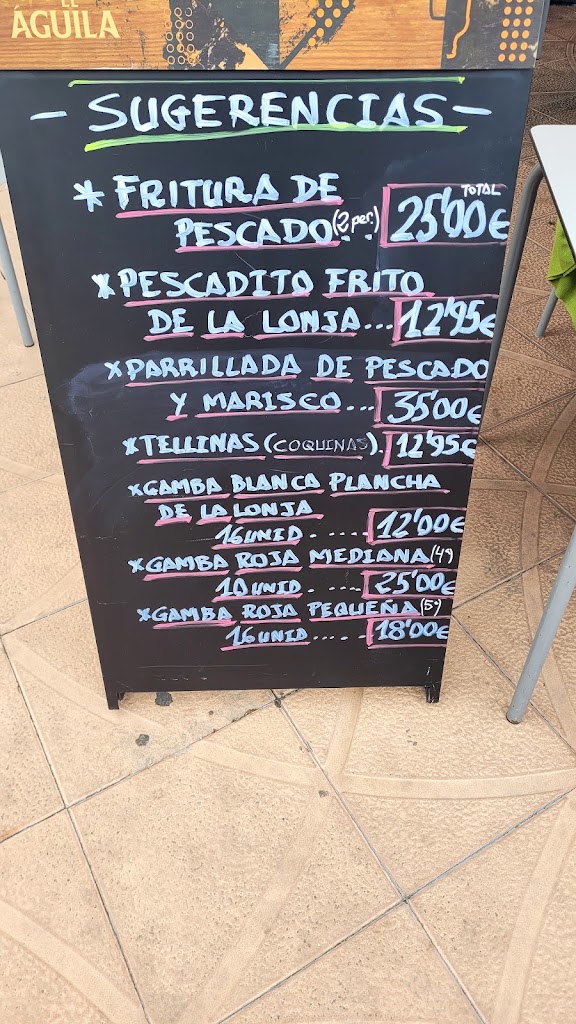 EL
ÁGUILA
- SUGERENCIAS -
* FRITURA DE TOTAL
PESCADO (2 per.) .. 25'00€
* PESCADITO FRITO
DE LA LONJA... 12'95€
* PARRILLADA DE PESCADO
Y MARISCO... 35'00€
* TELLINAS (COQUINAS). 12'95€
* GAMBA BLANCA PLANCHA
DE LA LONJA
16 UNID. ..... 12'00€
* GAMBA ROJA MEDIANA (4ª
10 UNID. .... 25'00€
* GAMBA ROJA PEQUEÑA (5ª)
16 UNID ..... 18'00€